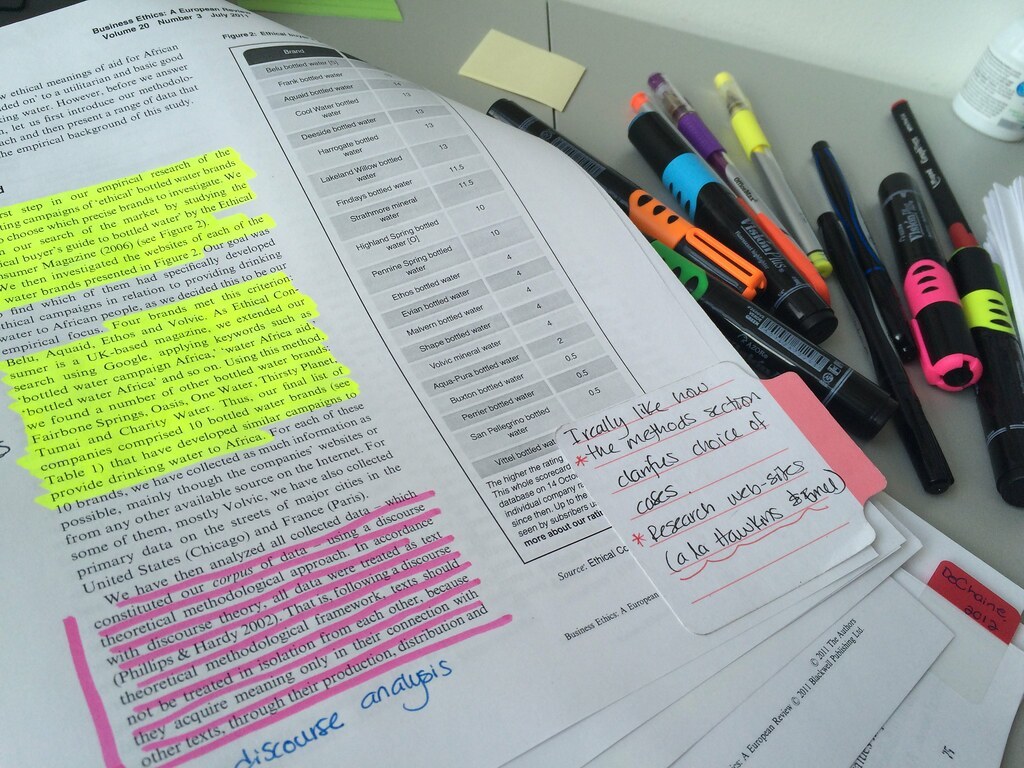 Business Ethics: A European Review
Volume 20 Number 3 July 2011
ew ethical meanings of aid for African
ded on' to a utilitarian and basic good
king water. However, before we answer
n, let us first introduce our methodolo-
ach, and then present a range of data that
he empirical background of this study.
d
rst step in our empirical research of the
ting campaigns of 'ethical' bottled water brands
to choose which precise brands to investigate. We
n our search of the market by studying the
cal buyer's guide to bottled water' by the Ethical
nsumer Magazine (2006) (see Figure 2).
We then investigated the websites of each of the
water brands presented in Figure 2. Our goal was
find which of them had specifically developed
ethical campaigns in relation to providing drinking
water to African people, as we decided this to be our
empirical focus. Four brands met this criterion:
Belu, Aquaid, Ethos and Volvic. As Ethical Con-
sumer is a UK-based magazine, we extended our
search using Google, applying keywords such as
'bottled water campaign Africa,' 'water Africa aid,'
'bottled water Africa' and so on. Using this method,
we found a number of other bottled water brands:
Fairbone Springs, Oasis, One Water, Thirsty Planet,
Tumai and Charity Water. Thus, our final list of
companies comprised 10 bottled water brands (see
Table 1) that have developed similar campaigns to
provide drinking water to Africa. For each of these
10 brands, we have collected as much information as
possible, mainly though the companies' websites or
from any other available source on the Internet. For
some of them, mostly Volvic, we have also collected
primary data on the streets of major cities in the
United States (Chicago) and France (Paris).
We have then analyzed all collected data – which
constituted our corpus of data – using a discourse
theoretical methodological approach. In accordance
with discourse theory, all data were treated as text
(Phillips & Hardy 2002). That is, following a discourse
theoretical methodological framework, texts should
not be treated in isolation from each other, because
they acquire meaning only in their connection with
other texts, through their production, distribution and
discourse analysis
Figure 2: Ethical
Brand
Belu bottled water [S]
Frank bottled water
Aquaid bottled water 14
Cool Water bottled water 13
Deeside bottled water 13
Harrogate bottled water 13
Lakeland Willow bottled water 13
Findlays bottled water 11.5
Strathmore mineral water 11.5
Highland Spring bottled water [O] 10
Pennine Spring bottled water 10
Ethos bottled water 4
Evian bottled water 4
Malvern bottled water 4
Shape bottled water 4
Volvic mineral water 2
Aqua-Pura bottled water 0.5
Buxton bottled water 0.5
Perrier bottled water
San Pellegrino bottled water
Vittel bottled wat
The higher the rating
This whole scorecard
database on 14 Octo
individual company
since then. Up to
seen by subsribers
more about our rati
Source: Ethical Co
Business Ethics: A European
I really like how
* the methods section
clarifies choice of
cases.
* Research web-sites
(a la Hawkins & Emel)
DeChaine
2012
© 2011 The Authors
s: A European Review © 2011 Blackwell Publishing Ltd.